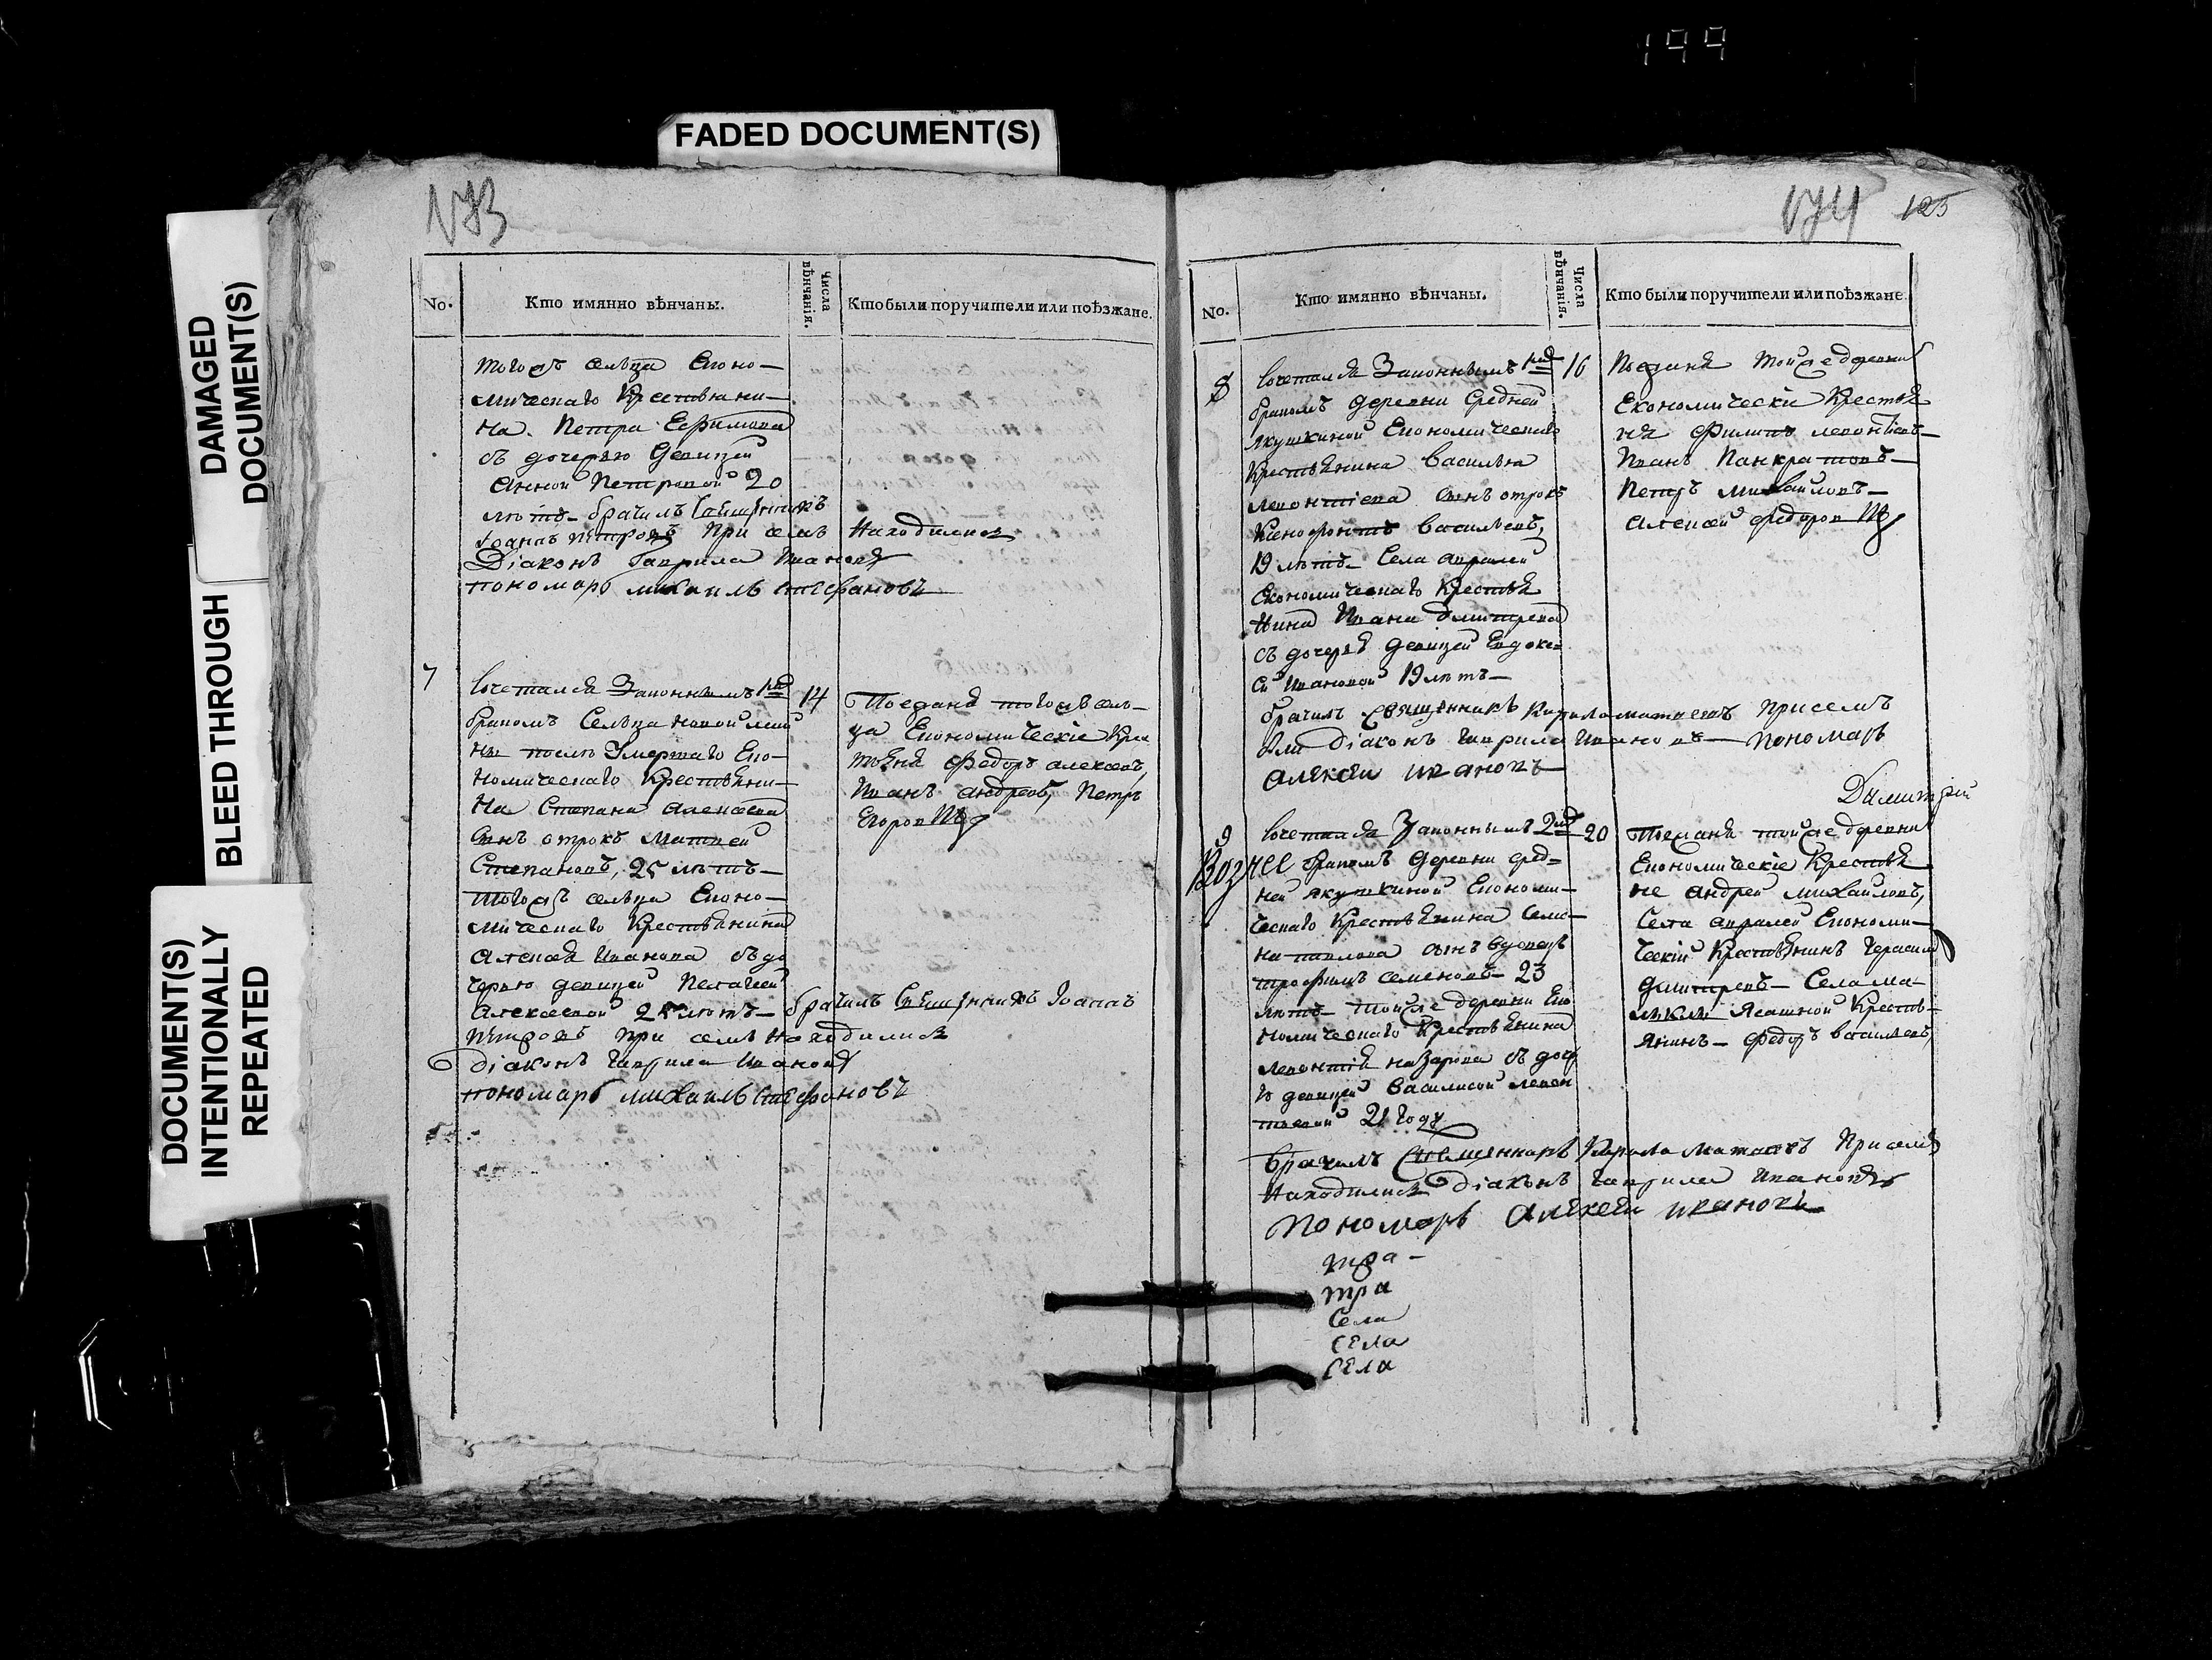 199
FADED DOCUMENT(S)
DAMAGED
DOCUMENT(S)
BLEED THROUGH
DOCUMENT(S)
INTENTIONALLY
REPEATED
173
No.
Кто имянно вѣнчаны.
Числа
вѣнчанія.
Кто были поручители или поѣзжане.
тогожъ сельца Еконо-
мическаго Крестьяни-
на Петра Ефимова
съ дочерью девицей
Анной Петровой 20
лѣтъ- брачилъ Священникъ
Іоаннъ Петровъ При семъ Находились
Діаконъ Гаврила Иановъ
пономарь михаилъ стефановъ
7
Сочетался Законнымъ 1мъ
бракомъ Сельца
после Умершаго Еко-
номическаго Крестьяни-
на Степана Алексеева
сынъ отрокъ Матвей
Степановъ, 25 лѣтъ-
тогожъ сельца Еконо-
мическаго Крестьянина
Алексея Иванова съ до
черью девицей Пелагией
Алексеевой 25 лѣтъ- брачилъ Священникъ Іоаннъ
Петровъ При семъ Находились
Діаконъ Гаврила Иванов
пономарь михаилъ стефановъ
14
Поезжаня тогожъ сель-
ца Економическіе Крес
тьяня Федоръ алексеевъ,
Иванъ андреевъ, Петръ
Егоров
174 125
No.
Кто имянно вѣнчаны.
Числа
вѣнчанія.
Кто были поручители или поѣзжане.
8
Сочетался Законнымъ 1мъ
бракомъ деревни Средней
Якушкиной Економическаго
Крестьянина Василья
Леонтіева сынъ отрокъ
Ксенофонтъ Васильевъ,
19 лѣтъ- Села апалей
Економическаго Крестья
нина Ивана дмитрева
съ дочеря девицей Евдоке-
ей Ивановой 19 лѣтъ-
брачилъ священникъ Кирила матвеевъ При семъ
были діаконъ Гаврила Ивановъ- Пономарь
алексеи ивановъ
16
Поезжаня тойже деревни
Економическіе Крестья
ня Филипъ леонтіевъ-
Иванъ Панкратовъ-
Петръ михайловъ-
алексей федоров
Дмитрій
9
Сочетался Законнымъ 2мъ
бракомъ деревни сред-
ней якушкиной Економи-
ческаго Крестьянина Семе-
на павлова сынъ вдовецъ
трофимъ семеновъ- 23
лѣтъ- тойже деревни Еко
номическаго Крестьянина
леонтія назарова съ дочер
ю девицей Василисой леон
тьевой 21 году
брачилъ Священникъ Кирила матвеевъ При семъ
Находились діаконъ Гаврила Ивановъ
Пономарь алексеи ивановъ
20
Поезжаня тойже деревни
Економическіе Крестья
не андрей михайловъ,
Села апалей Економи-
ческій Крестьянинъ Герасим
дмитревъ- Села ма-
Ясашной Кресть-
янинъ- федоръ васильевъ,
тра-
тра
Села
села
села